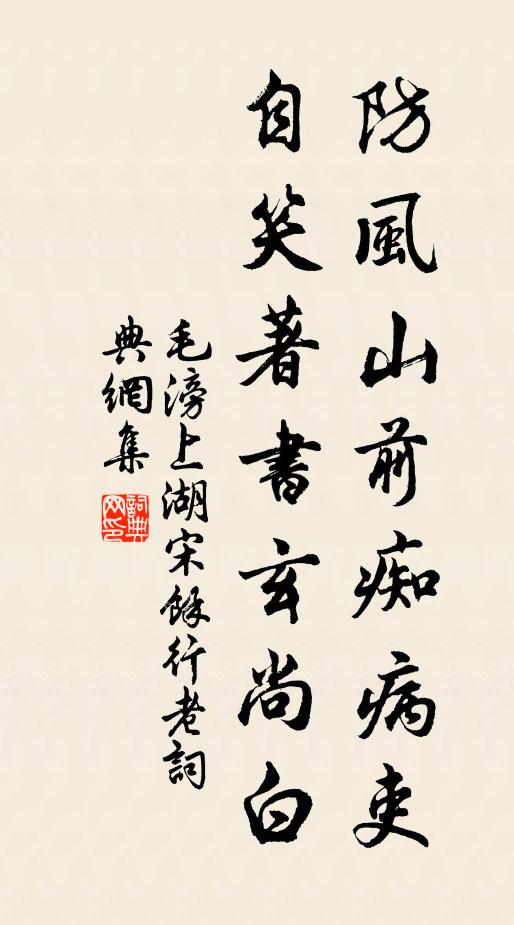 防風山前痴病吏
自笑著書玄尚白
毛滂上湖宋餘行老詞
典網集
詞典
網印